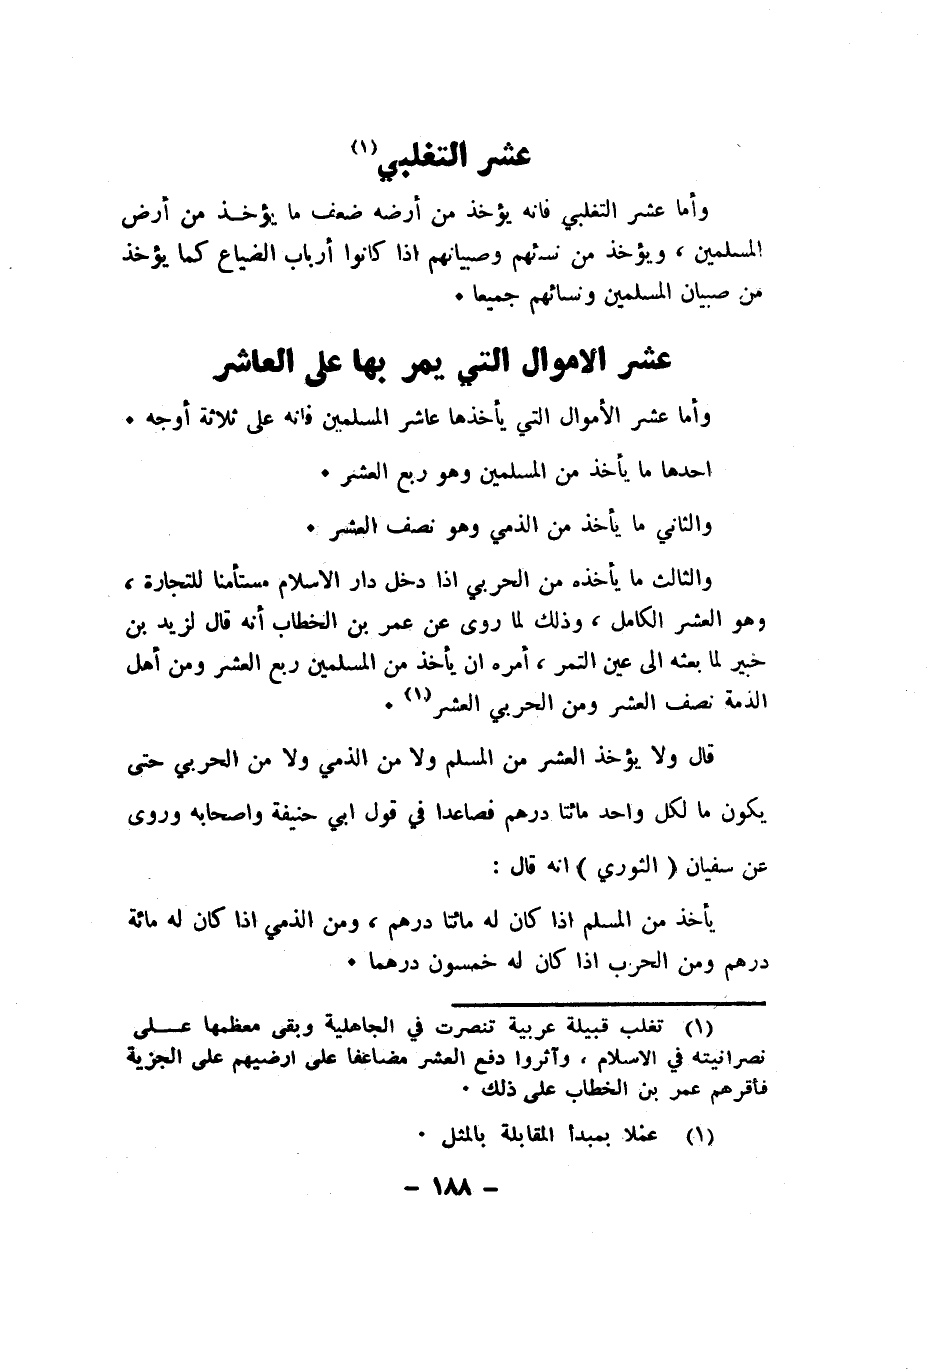 عشر التغلبي (١)
وأما عشر التغلبي فانه يؤخذ من أرضه ضعف ما يؤخــذ من أرض
المسلمين ، ويؤخذ من نسائهم وصبيانهم اذا كانوا أرباب الضياع كما يؤخذ
من صبيان المسلمين ونسائهم جميعا •
عشر الاموال التي يمر بها على العاشر
وأما عشر الأموال التي يأخذها عاشر المسلمين فانه على ثلاثة أوجه •
احدها ما يأخذ من المسلمين وهو ربع العشر •
والثاني ما يأخذ من الذمي وهو نصف العشر •
والثالث ما يأخذه من الحربي اذا دخل دار الاسلام مستأمنا للتجارة ،
وهو العشر الكامل ، وذلك لما روى عن عمر بن الخطاب أنه قال لزيد بن
خبير لما بعثه الى عين التمر ، أمره ان يأخذ من المسلمين ربع العشر ومن أهل
الذمة نصف العشر ومن الحربي العشر (١) •
قال ولا يؤخذ العشر من المسلم ولا من الذمي ولا من الحربي حتى
يكون ما لكل واحد مائتا درهم فصاعدا في قول ابي حنيفة واصحابه وروى
عن سفيان ( الثوري ) انه قال :
يأخذ من المسلم اذا كان له مائتا درهم ، ومن الذمي اذا كان له مائة
درهم ومن الحرب اذا كان له خمسون درهما •
(١) تغلب قبيلة عربية تنصرت في الجاهلية وبقى معظمها عــلى
نصرانيته في الاسلام ، وآثروا دفع العشر مضاعفا على ارضيهم على الجزية
فأقرهم عمر بن الخطاب على ذلك •
(١) عملا بمبدأ المقابلة بالمثل •
– ١٨٨ –